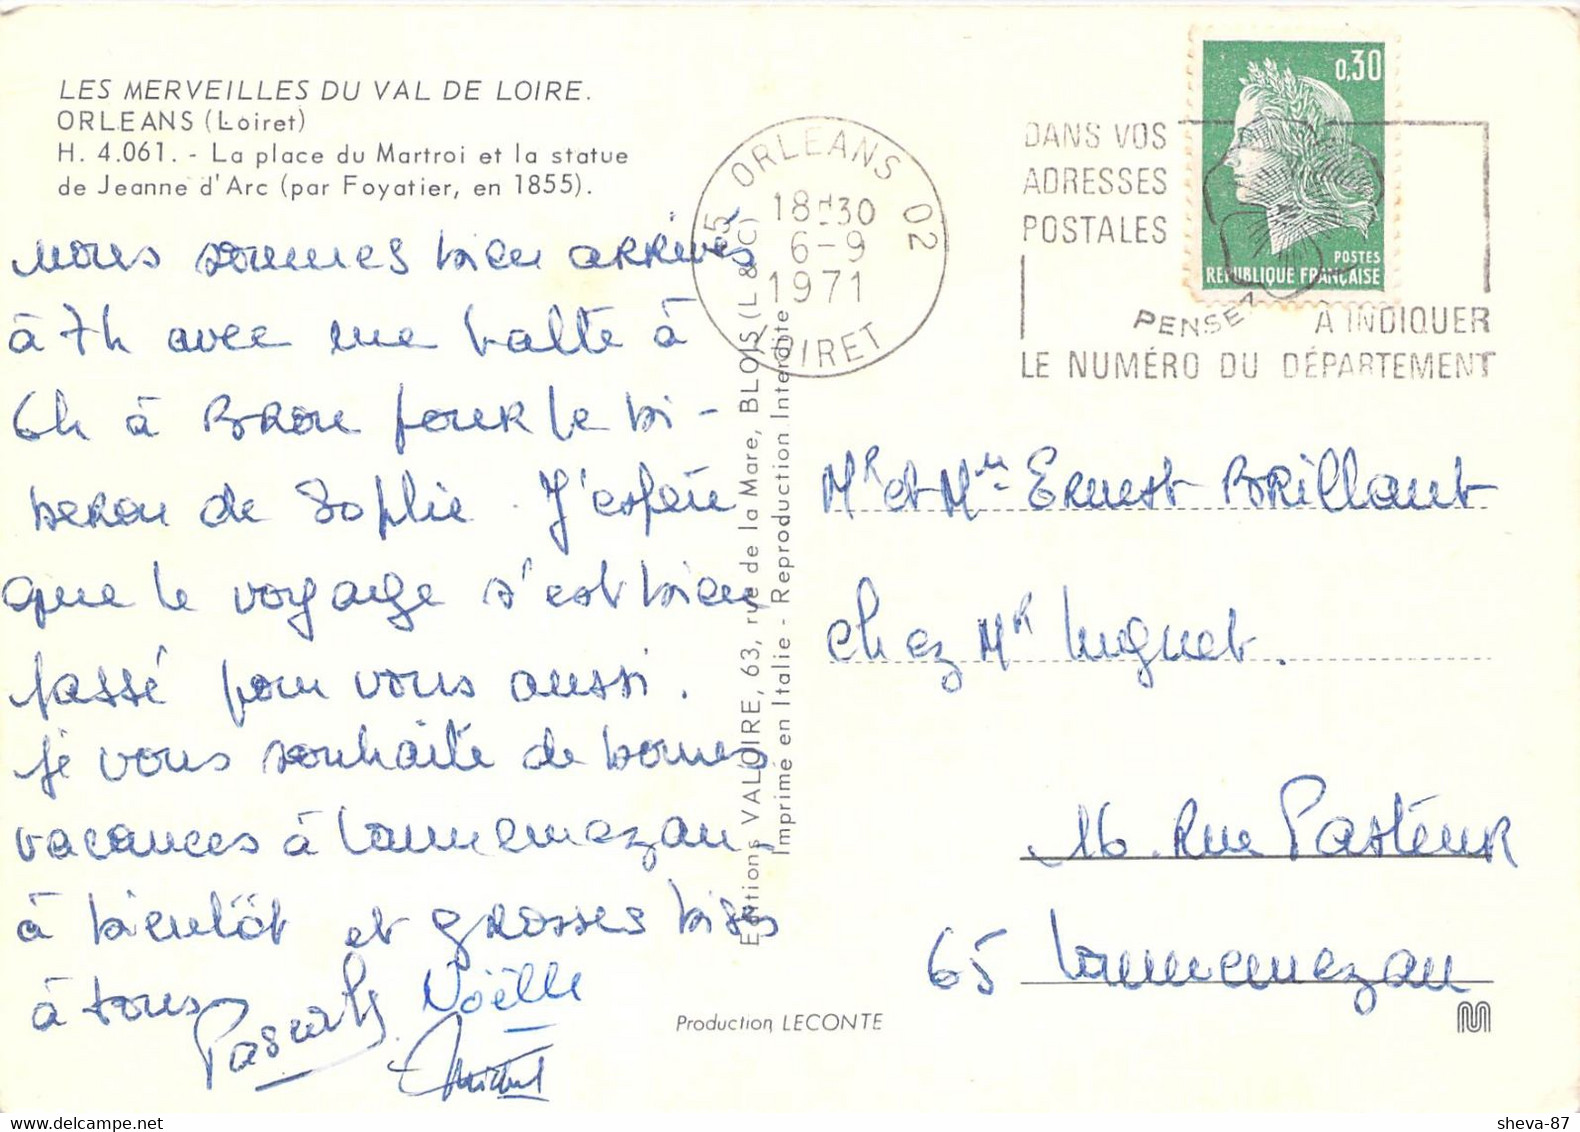 LES MERVEILLES DU VAL DE LOIRE.
ORLEANS (Loiret)
H. 4.061. - La place du Martroi et la statue
de Jeanne d'Arc (par Foyatier, en 1855).
nous sommes bien arrivés
à 7h avec une halte à
6h à Bron pour le bi-
beron de Sophie. J'espère
que le voyage s'est bien
passé pour vous aussi.
je vous souhaite de bonnes
vacances à Lannemezan.
à bientôt et grosses bises
à tous
Pascale Noëlle
Michel
Editions VALOIRE, 63, rue de la Mare, BLOIS (L & C)
Imprimé en Italie - Reproduction Interdite
Production LECONTE
45 ORLEANS 02
18H30
6-9
1971
LOIRET
DANS VOS
ADRESSES
POSTALES
PENSEZ À INDIQUER
LE NUMÉRO DU DÉPARTEMENT
0,30
POSTES
REPUBLIQUE FRANÇAISE
Mr et Mme Ernest Brillant
chez Mr Huguet.
16 Rue Pasteur
65 Lannemezan
sheva-87